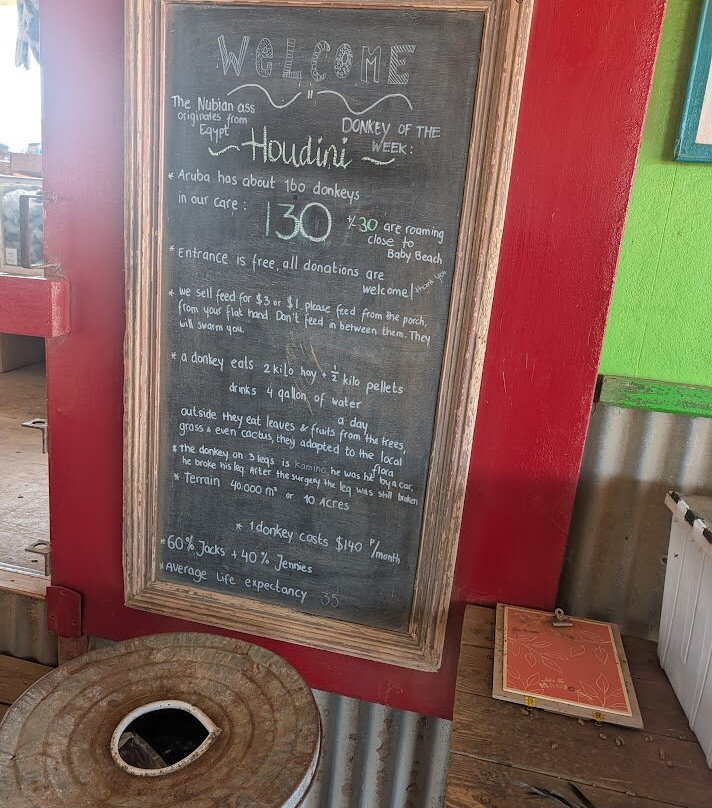 WELCOME
The Nubian ass
originates from
Eqypt
DONKEY OF THE
WEEK:
Houdini
* Aruba has about 160 donkeys
in our care : 130
+/- 30 are roaming
close to
Baby Beach
* Entrance is free, all donations are
welcome! thank you
* we sell feed for $3 or $1. please feed from the porch,
from your flat hand. Don't feed in between them. They
will swarm you.
* a donkey eats 2 kilo hay + 1/2 kilo pellets
drinks 4 gallon of water
a day
outside they eat leaves & fruits from the trees,
grass & even cactus, they adapted to the local
flora
* The donkey on 3 legs is Kamino, he was hit by a car,
he broke his leg. After the surgery the leg was still broken
* Terrain 40.000 m² or 10 Acres
* 1 donkey costs $140 P/month
* 60% Jacks + 40% Jennies
* Average life expectancy 35